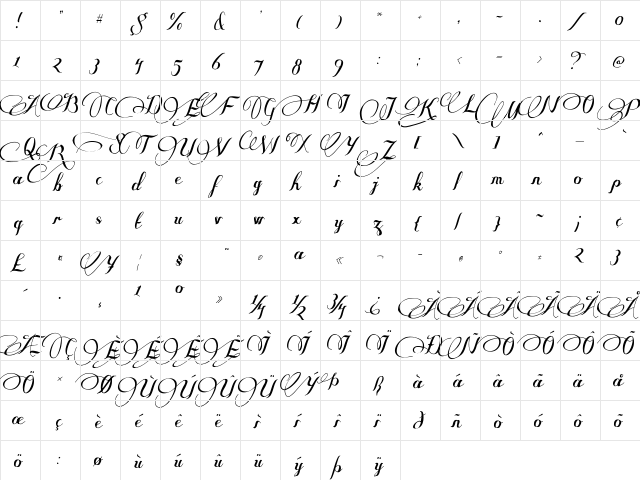 ! " # $ % & ' ( ) * + , - . / 0
1 2 3 4 5 6 7 8 9 : ; < = > ? @
A B C D E F G H I J K L M N O P
Q R S T U V W X Y Z [ \ ] ^ _ `
a b c d e f g h i j k l m n o p
q r s t u v w x y z { | } ~ ¡ ¢
£ ¤ ¥ ¦ § ¨ © ª « ¬ - ® ¯ ° 2 3
´ · ¸ 1 º » ¼ ½ ¾ ¿ À Á Â Ã Ä Å
Æ Ç È É Ê Ë Ì Í Î Ï Ð Ñ Ò Ó Ô Õ
Ö × Ø Ù Ú Û Ü Ý Þ ß à á â ã ä å
æ ç è é ê ë ì í î ï ð ñ ò ó ô õ
ö ÷ ø ù ú û ü ý þ ÿ